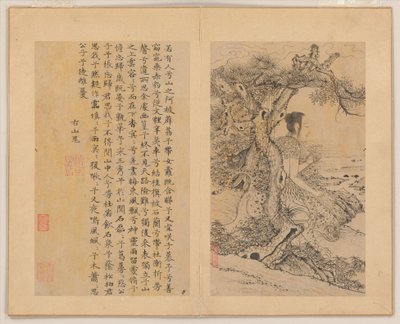 若有人兮山之阿被薜荔兮帶女蘿既含睇兮又宜笑子慕予兮善
窈窕乘赤豹兮從文貍辛夷車兮結桂旗被石蘭兮帶杜衡折芳
馨兮遺所思余處幽篁兮終不見天路險難兮獨後來表獨立兮山
之上雲容〻兮而在下杳冥〻兮羌晝晦東風飄兮神靈雨留靈脩兮
憺忘歸歲既晏兮孰華予采三秀兮於山間石磊〻兮葛蔓〻怨公
子兮悵忘歸君思我兮不得閒山中人兮芳杜若飲石泉兮蔭松柏君
思我兮然疑作靁填〻兮雨冥〻猨啾〻兮又夜鳴風颯〻兮木蕭〻思
公子兮徒離憂
右山鬼